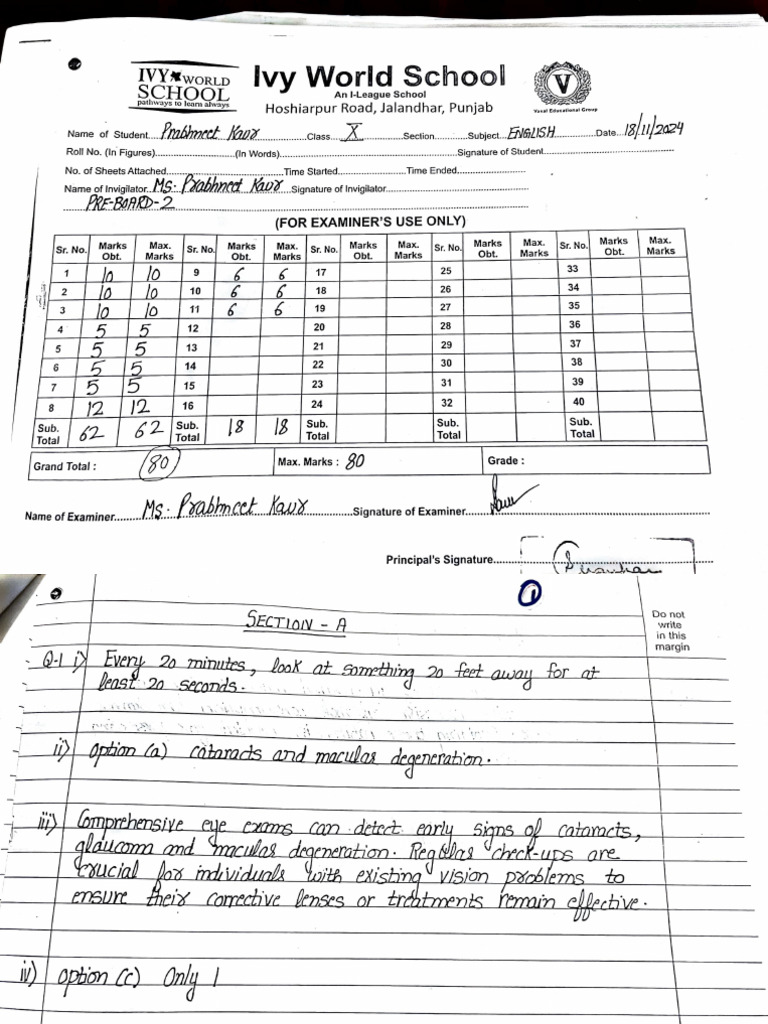 IVY WORLD
SCHOOL
pathways to learn always
Ivy World School
An I-League School
Hoshiarpur Road, Jalandhar, Punjab
V
Vasal Educational Group
Name of Student Prabhmeet Kaur Class X Section Subject ENGLISH Date 18/11/2024
Roll No. (In Figures) (In Words) Signature of Student
No. of Sheets Attached Time Started Time Ended
Name of Invigilator Ms. Prabhneet Kaur Signature of Invigilator
PRE-BOARD-2
(FOR EXAMINER'S USE ONLY)
Sr. No. Marks Obt. Max. Marks Sr. No. Marks Obt. Max. Marks Sr. No. Marks Obt. Max. Marks Sr. No. Marks Obt. Max. Marks Sr. No. Marks Obt. Max. Marks
1 10 10 9 6 6 17 25 33
2 10 10 10 6 6 18 26 34
3 10 10 11 6 6 19 27 35
4 5 5 12 20 28 36
5 5 5 13 21 29 37
6 5 5 14 22 30 38
7 5 5 15 23 31 39
8 12 12 16 24 32 40
Sub. Total 62 62 Sub. Total 18 18 Sub. Total Sub. Total Sub. Total
Grand Total : 80 Max. Marks : 80 Grade :
Name of Examiner Ms. Prabhmeet Kaur Signature of Examiner
Principal's Signature
1
SECTION - A
Do not
write
in this
margin
Q-1 i) Every 20 minutes, look at something 20 feet away for at
least 20 seconds.
ii) option (a) cataracts and macular degeneration.
iii) Comprehensive eye exams can detect early signs of cataracts,
glaucoma and macular degeneration. Regular check-ups are
crucial for individuals with existing vision problems to
ensure their corrective lenses or treatments remain effective.
iv) option (c) Only 1